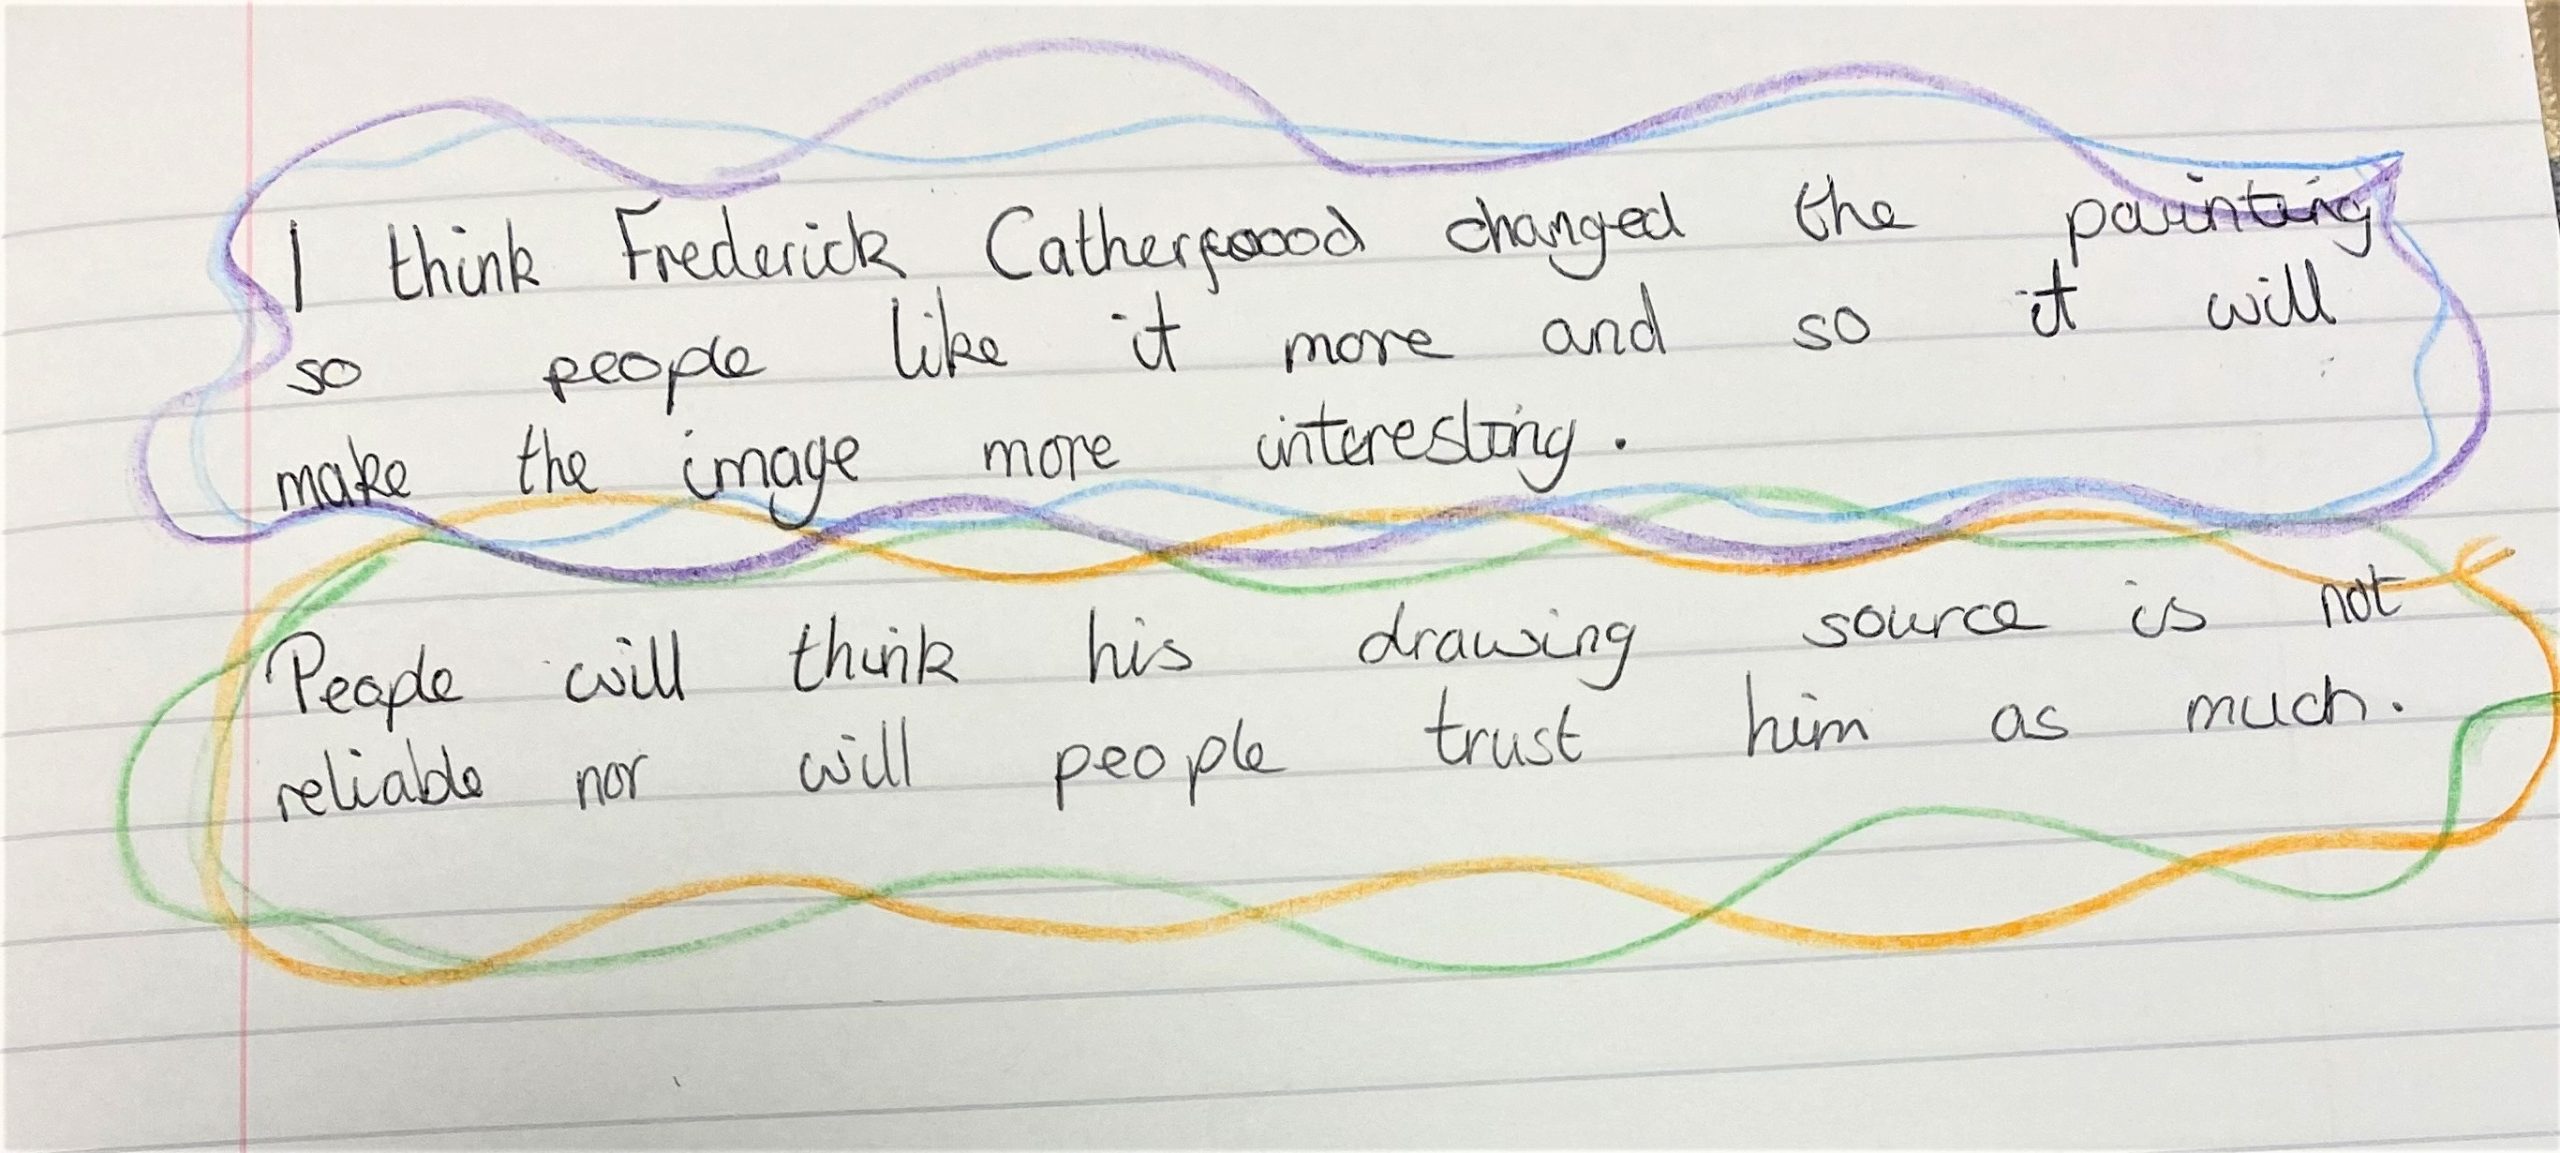 I think Frederick Catherfoood changed the painting
so people like it more and so it will
make the image more interesting.
People will think his drawing source is not
reliable nor will people trust him as much.